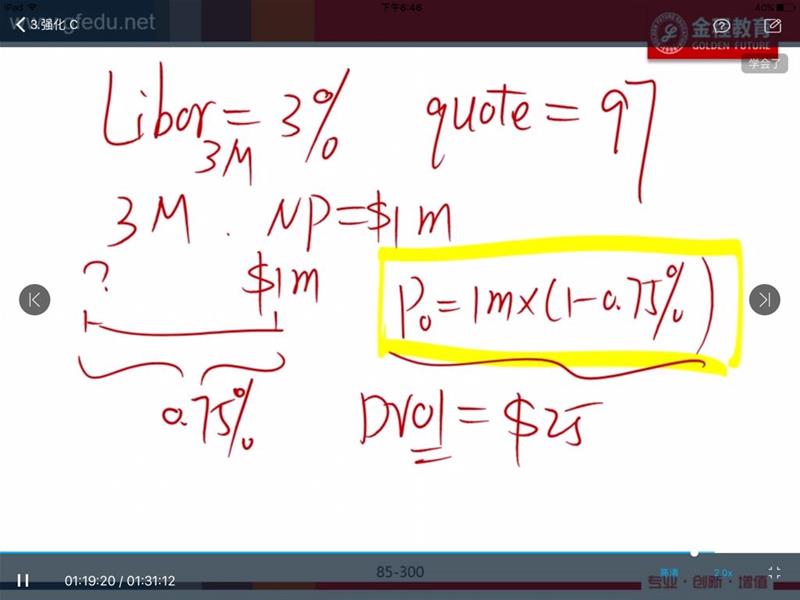 iPad 下午6:46 40%
www.gfedu.net
3.强化 C
金程教育
GOLDEN FUTURE
学会了
Libor = 3% quote = 97
3M
3M . NP=$1m
? $1m
P₀ = 1m×(1-0.75%)
0.75%
DV01 = $25
01:19:20 / 01:31:12
85-300
高清 2.0x
专业·创新·增值